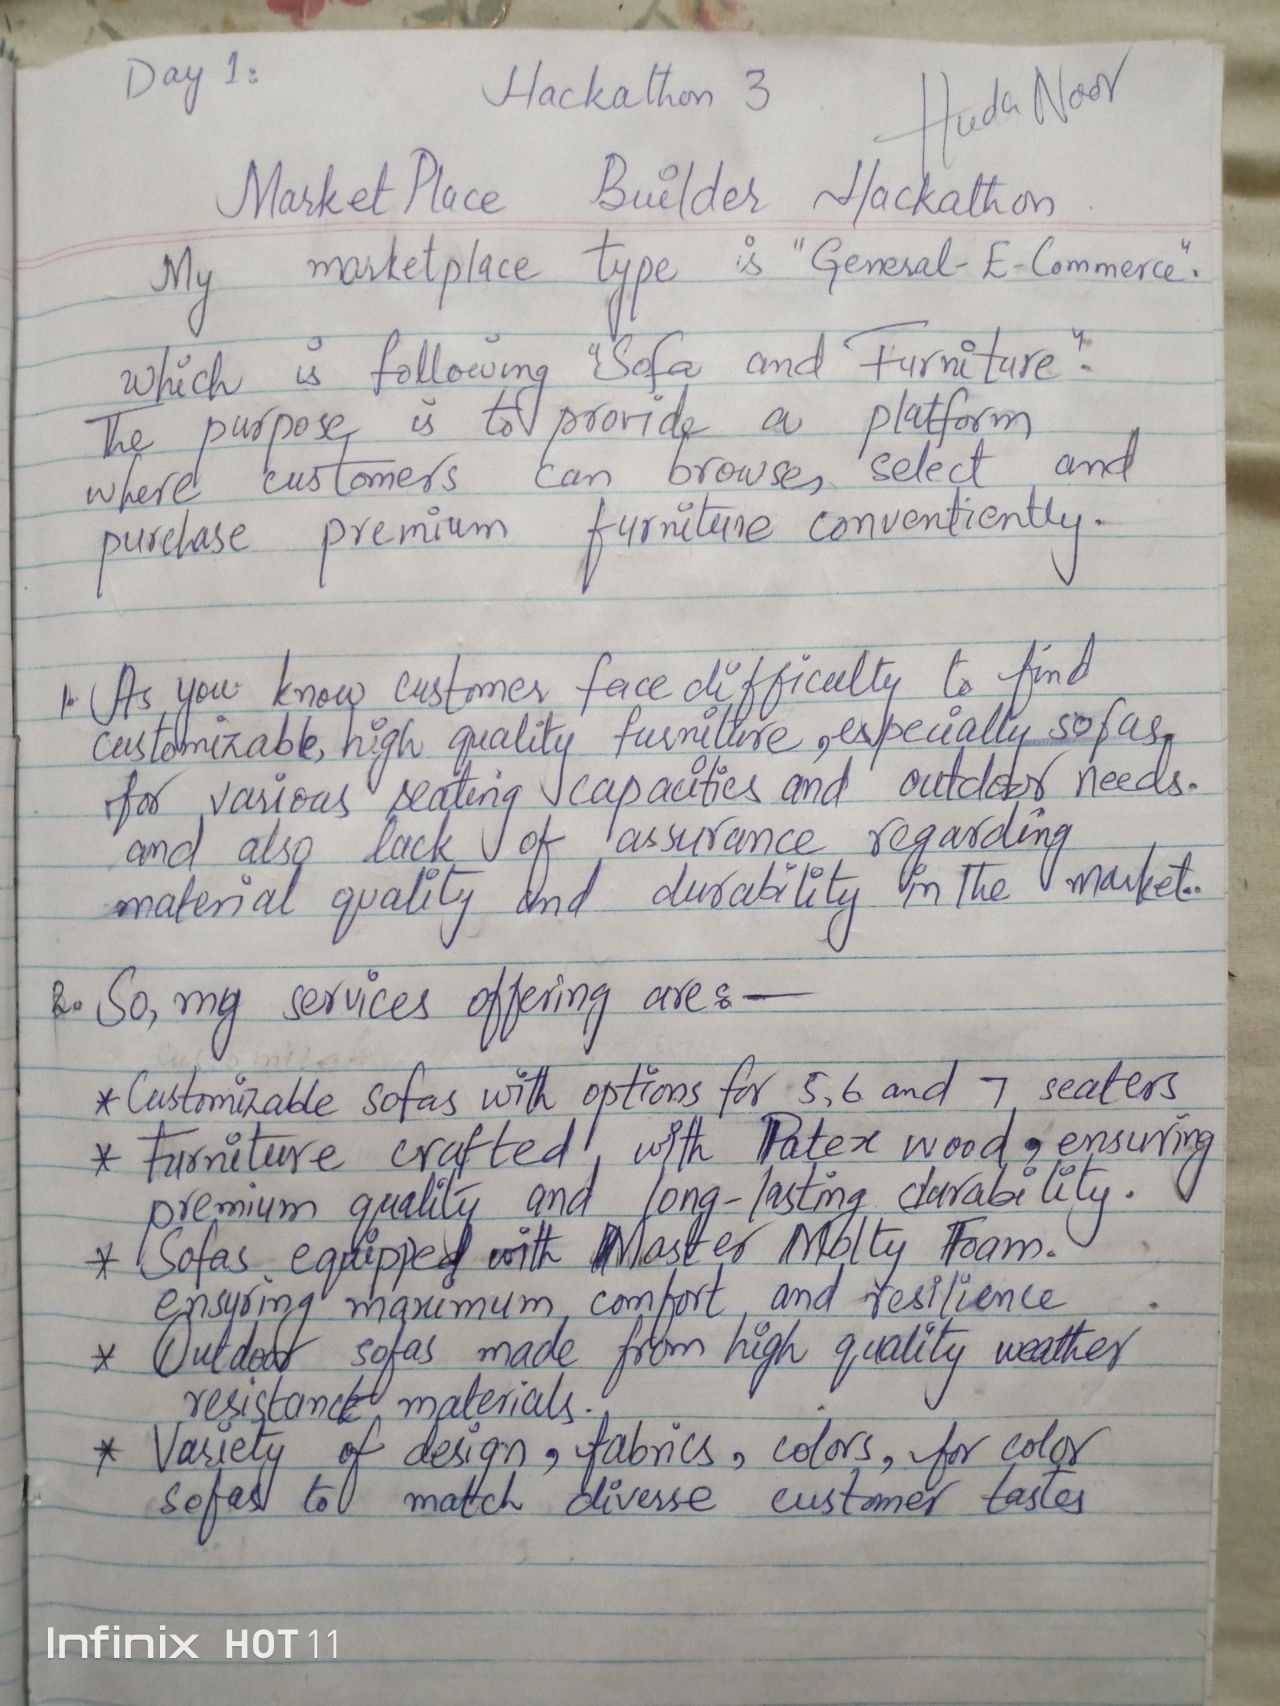 Day 1:
Hackathon 3
Huda Noor
MarketPlace Builder Hackathon
My marketplace type is "General-E-Commerce".
which is following "Sofa and Furniture".
The purpose is to provide a platform
where customers can browse, select and
purchase premium furniture conventiently.
1. As you know customer face difficulty to find
customizable, high quality furniture, especially sofas,
for various seating capacities and outdoor needs.
and also lack of assurance regarding
material quality and durability in the market.
2. So, my services offering are:—
* Customizable sofas with options for 5, 6 and 7 seaters
* Furniture crafted with Patex wood, ensuring
premium quality and long-lasting durability.
* Sofas equipped with Master Molty Foam.
ensuring maximum comfort and resilience.
* Outdoor sofas made from high quality weather
resistance materials.
* Variety of design, fabrics, colors, for color
sofas to match diverse customer tastes
Infinix HOT 11